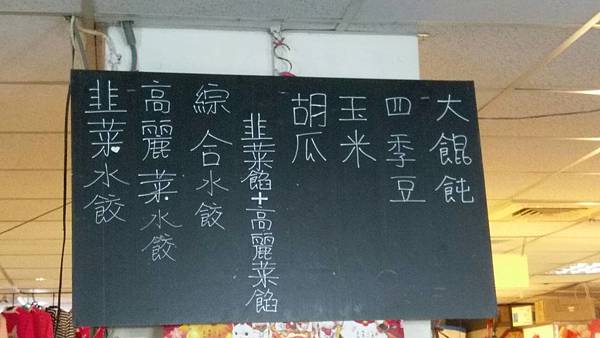 大餛飩
四季豆
玉米
胡瓜
韭菜餡+高麗菜餡
綜合水餃
高麗菜水餃
韭菜水餃